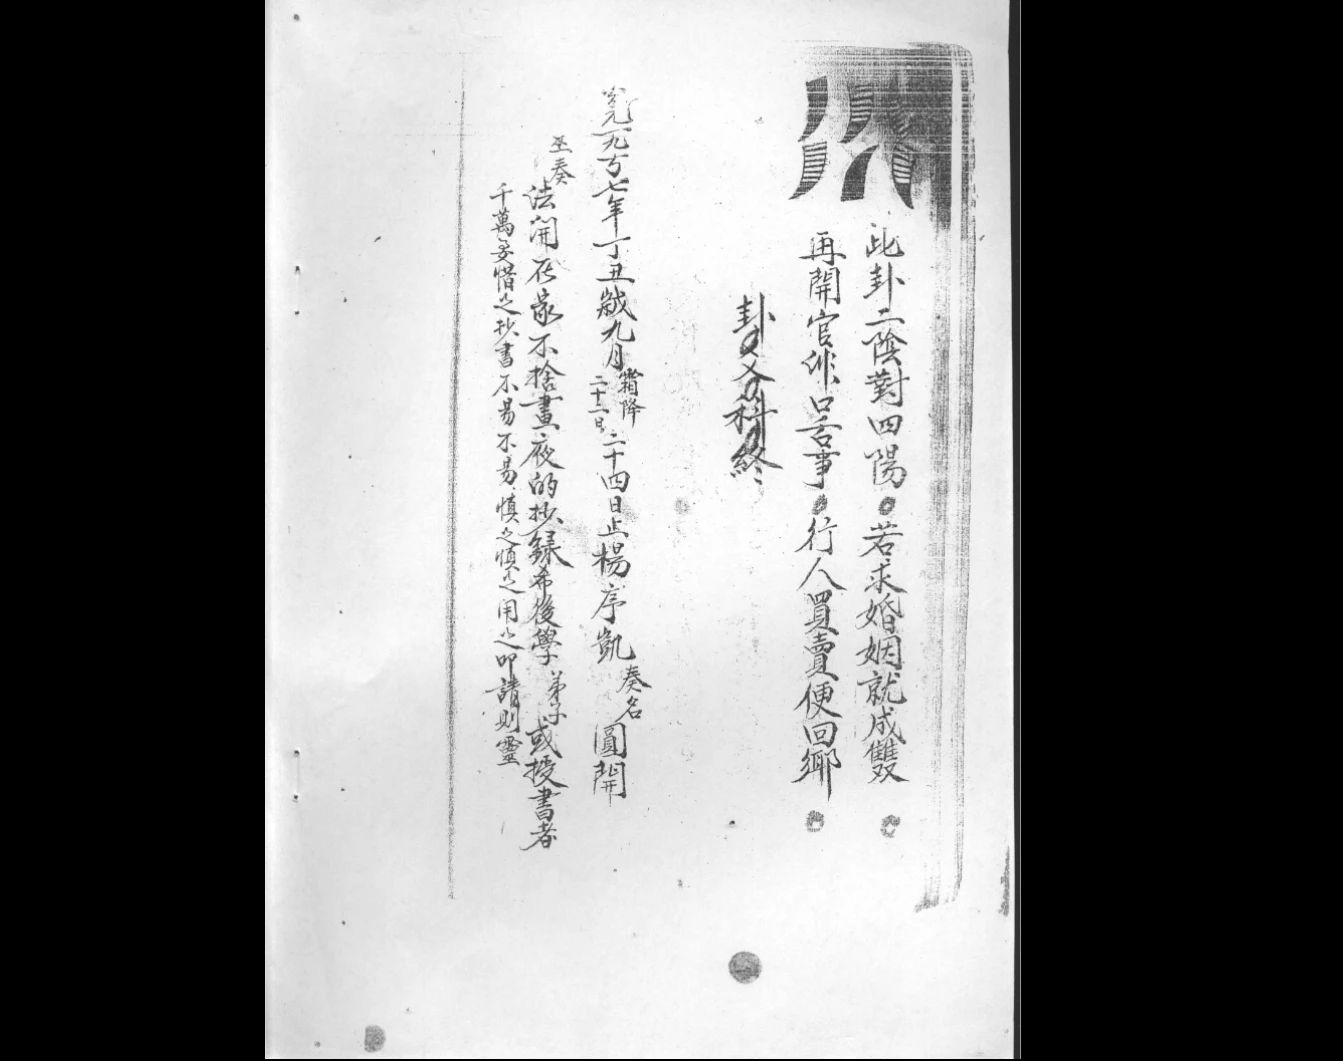 此卦二陰對四陽 若求婚姻就成雙
再開官非口舌事 行人買賣便回鄉
卦文科終
一九九七年丁丑歲九月霜降二十二日二十四日止楊序凱奏名圓開
巫奏法開在家不捨晝夜的抄錄希後學弟子或授書者
千萬妥惜之抄書不易不易慎之慎之用之叩請則靈